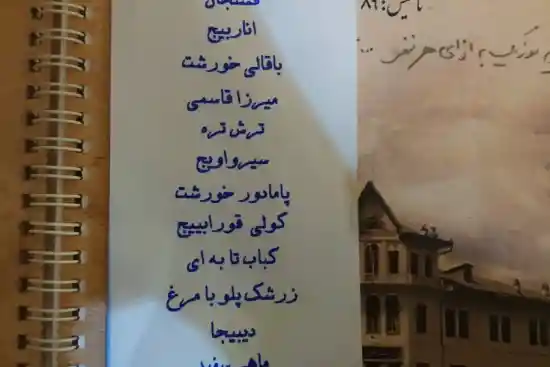 فسنجان
اناربیج
باقالی خورشت
میرزا قاسمی
ترش تره
سیرواویج
پامادور خورشت
کولی قورابییج
کباب تا به ای
زرشک پلو با مرغ
دیبیجا
ماهی سفید
تاسیس: ۸۹
به ازای هر نفر ...